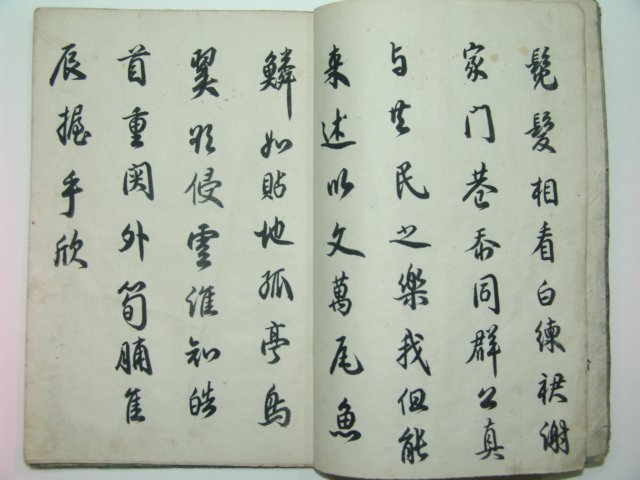 髮相看白練裙謝
家門巷忝同群公真
与共民之樂我但能
来述以文萬尾魚
鱗如貼地孤亭鳥
翼欲侵雲誰知皓
首重関外筍脯佳
辰握手欣